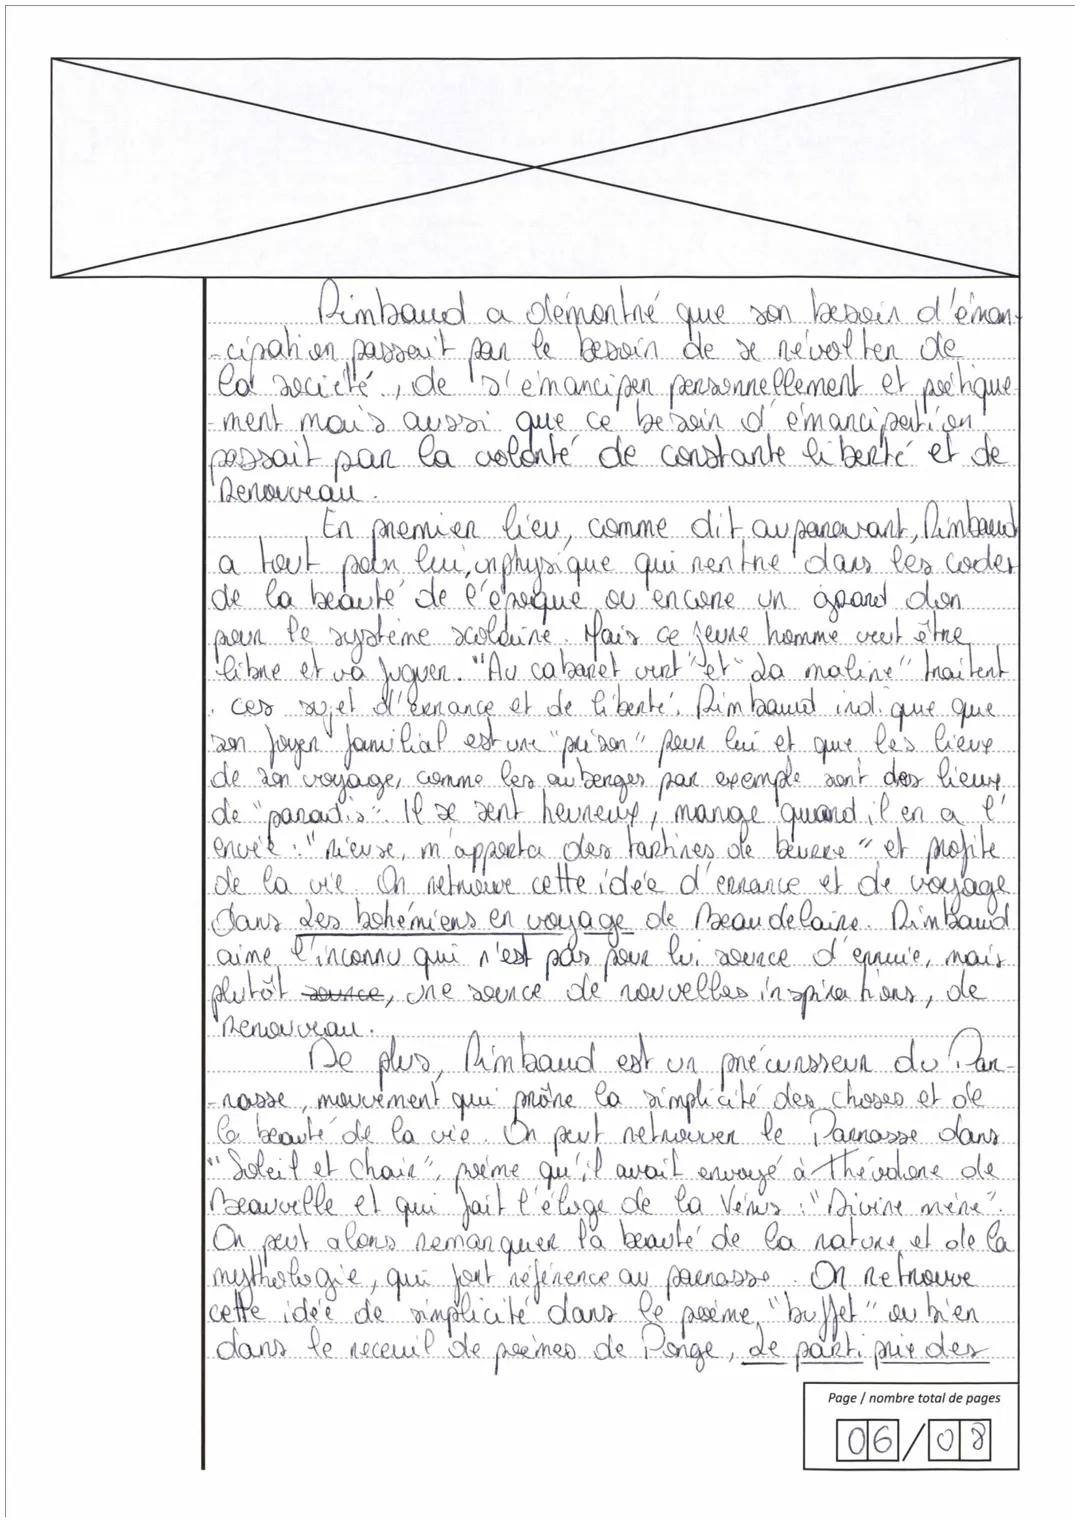 Rimbaud a démontré que son besoin d'éman-
-cipation passait par le besoin de se révolter de
la société, de s'émanciper personnellement et poétique-
-ment mais aussi que ce besoin d'émancipation
passait par la volonté de constante liberté et de
Renouveau.
En premier lieu, comme dit auparavant, Rimbaud
a tout pour lui, un physique qui rentre dans les codes
de la beauté de l'époque ou encore un grand don
pour le système scolaire. Mais ce jeune homme veut être
libre et va fuguer. "Au cabaret vert" et "La maline" traitent
ces sujet d'errance et de liberté. Rimbaud indique que
son foyer familial est une "prison" pour lui et que les lieux
de son voyage, comme les auberges par exemple sont des lieux
de "paradis". Il se sent heureux, mange quand il en a l'
envie : "rieuse, m'apporta des tartines de beurre" et profite
de la vie. On retrouve cette idée d'errance et de voyage
dans Les bohémiens en voyage de Beaudelaire. Rimbaud
aime l'inconnu qui n'est pas pour lui source d'ennuie, mais
plutôt source, une source de nouvelles inspirations, de
Renouveau.
De plus, Rimbaud est un précursseur du Par-
-nasse, mouvement qui prône la simplicité des choses et de
la beauté de la vie. On peut retrouver le Parnasse dans
"Soleil et Chair", poème qu'il avait envoyé à Théodore de
Beauville et qui fait l'éloge de la Vénus : "Divine mère".
On peut alors remarquer la beauté de la nature et de la
mythologie, qui font référence au parnasse. On Retrouve
cette idée de simplicité dans le poème "buffet" ou bien
dans le receuil de poèmes de Ponge, Le parti prie des
Page / nombre total de pages
06/08